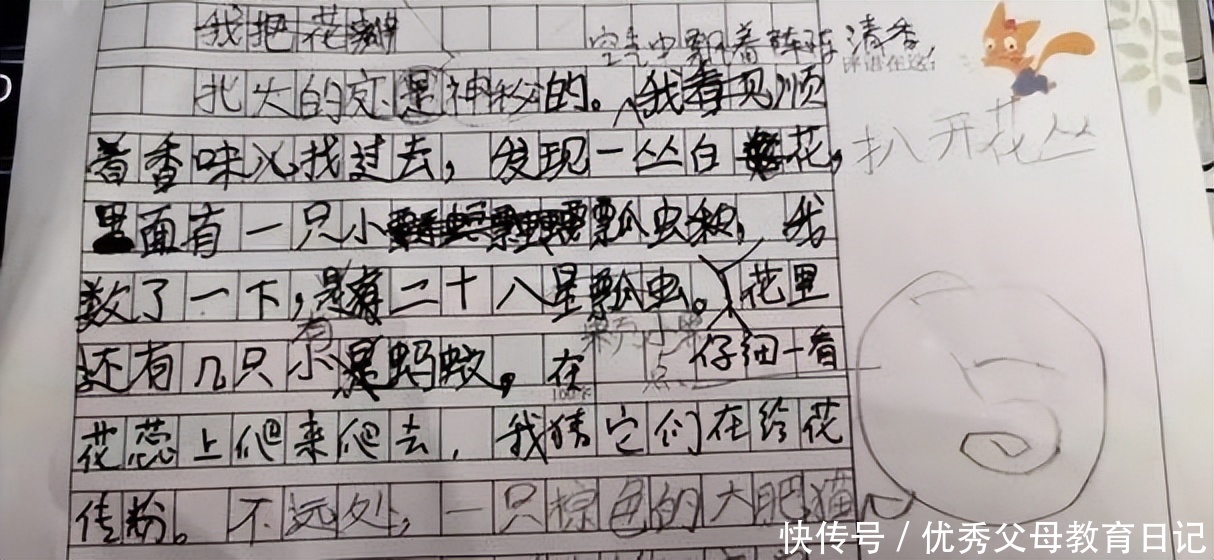 我把花瓣
空气中飘着阵阵清香
北大的夜是神秘的。我看见顺
着香味儿找过去，发现一丛白花，
扒开花丛
里面有一只小瓢虫，我
数了一下，是有二十八星瓢虫。花里
还有几只小蚂蚁。在 仔细一看
花蕊上爬来爬去，我猜它们在给花
传粉。不远处，一只棕色的大肥猫
快传号／优秀父母教育日记